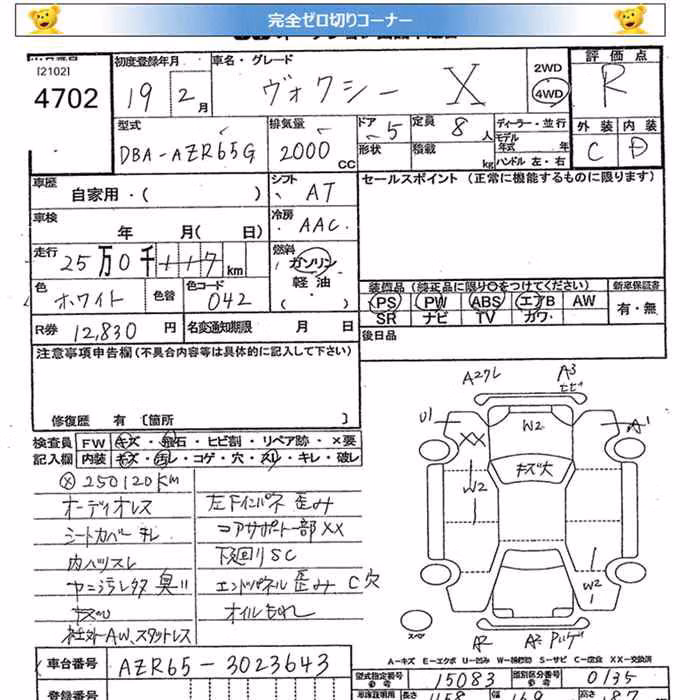 完全ゼロ切りコーナー
[2102]
4702
初度登録年月
19 2月
車名・グレード
ヴォクシー X
2WD
4WD
評価点
R
型式
DBA-AZR65G
排気量
2000 CC
ドア
5
形状
定員
8人
積載
kg
ディーラー・並行
モデル年式 年
ハンドル 左・右
外装 内装
C D
車歴
自家用・( )
シフト
AT
セールスポイント (正常に機能するものに限ります)
車検
年 月( 日)
冷房
AAC
走行
25万0千117km
燃料
ガソリン
軽油
・( )
色
ホワイト
色替
色コード
042
装備品 (純正品に限り○をつけてください)
PS PW ABS エアB AW
SR ナビ TV カワ
新車保証書
有・無
R券 12,830円
名変通知期限 月 日
後日品
注意事項申告欄(不具合内容等は具体的に記入して下さい)
修復歴 有 [箇所 ]
検査員 FW キズ・飛石・ヒビ割・リペア跡・×要
記入欄 内装 キズ・汚レ・コゲ・穴・スレ・キレ・破レ
ⓧ250120Km
オーディオレス
シートカバー チレ
内ハツスレ
社外AW、スタットレス
左下インパネ 歪み
コアサポート一部XX
下廻りSC
エンドパネル歪み C穴
オイルもれ
A2クレ
A3
ヒビ
U1
XX
W2
A1
キズ大
W2
W2
スペア
A2
A2
A-キズ E-エクボ U-凹み W-補修跡 S-サビ C-腐食 XX-交換済
車台番号 AZR65-3023643
登録番号
型式指定番号 15083
類別区分番号 0135
車庫証明用
長さ
幅
高さ